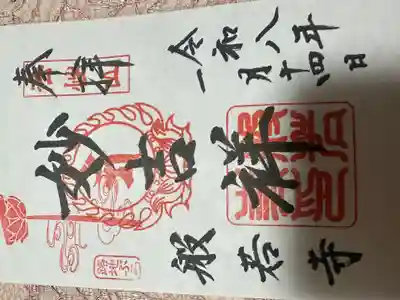 奉拝
令和八年
一月十四日
妙吉祥
般若寺